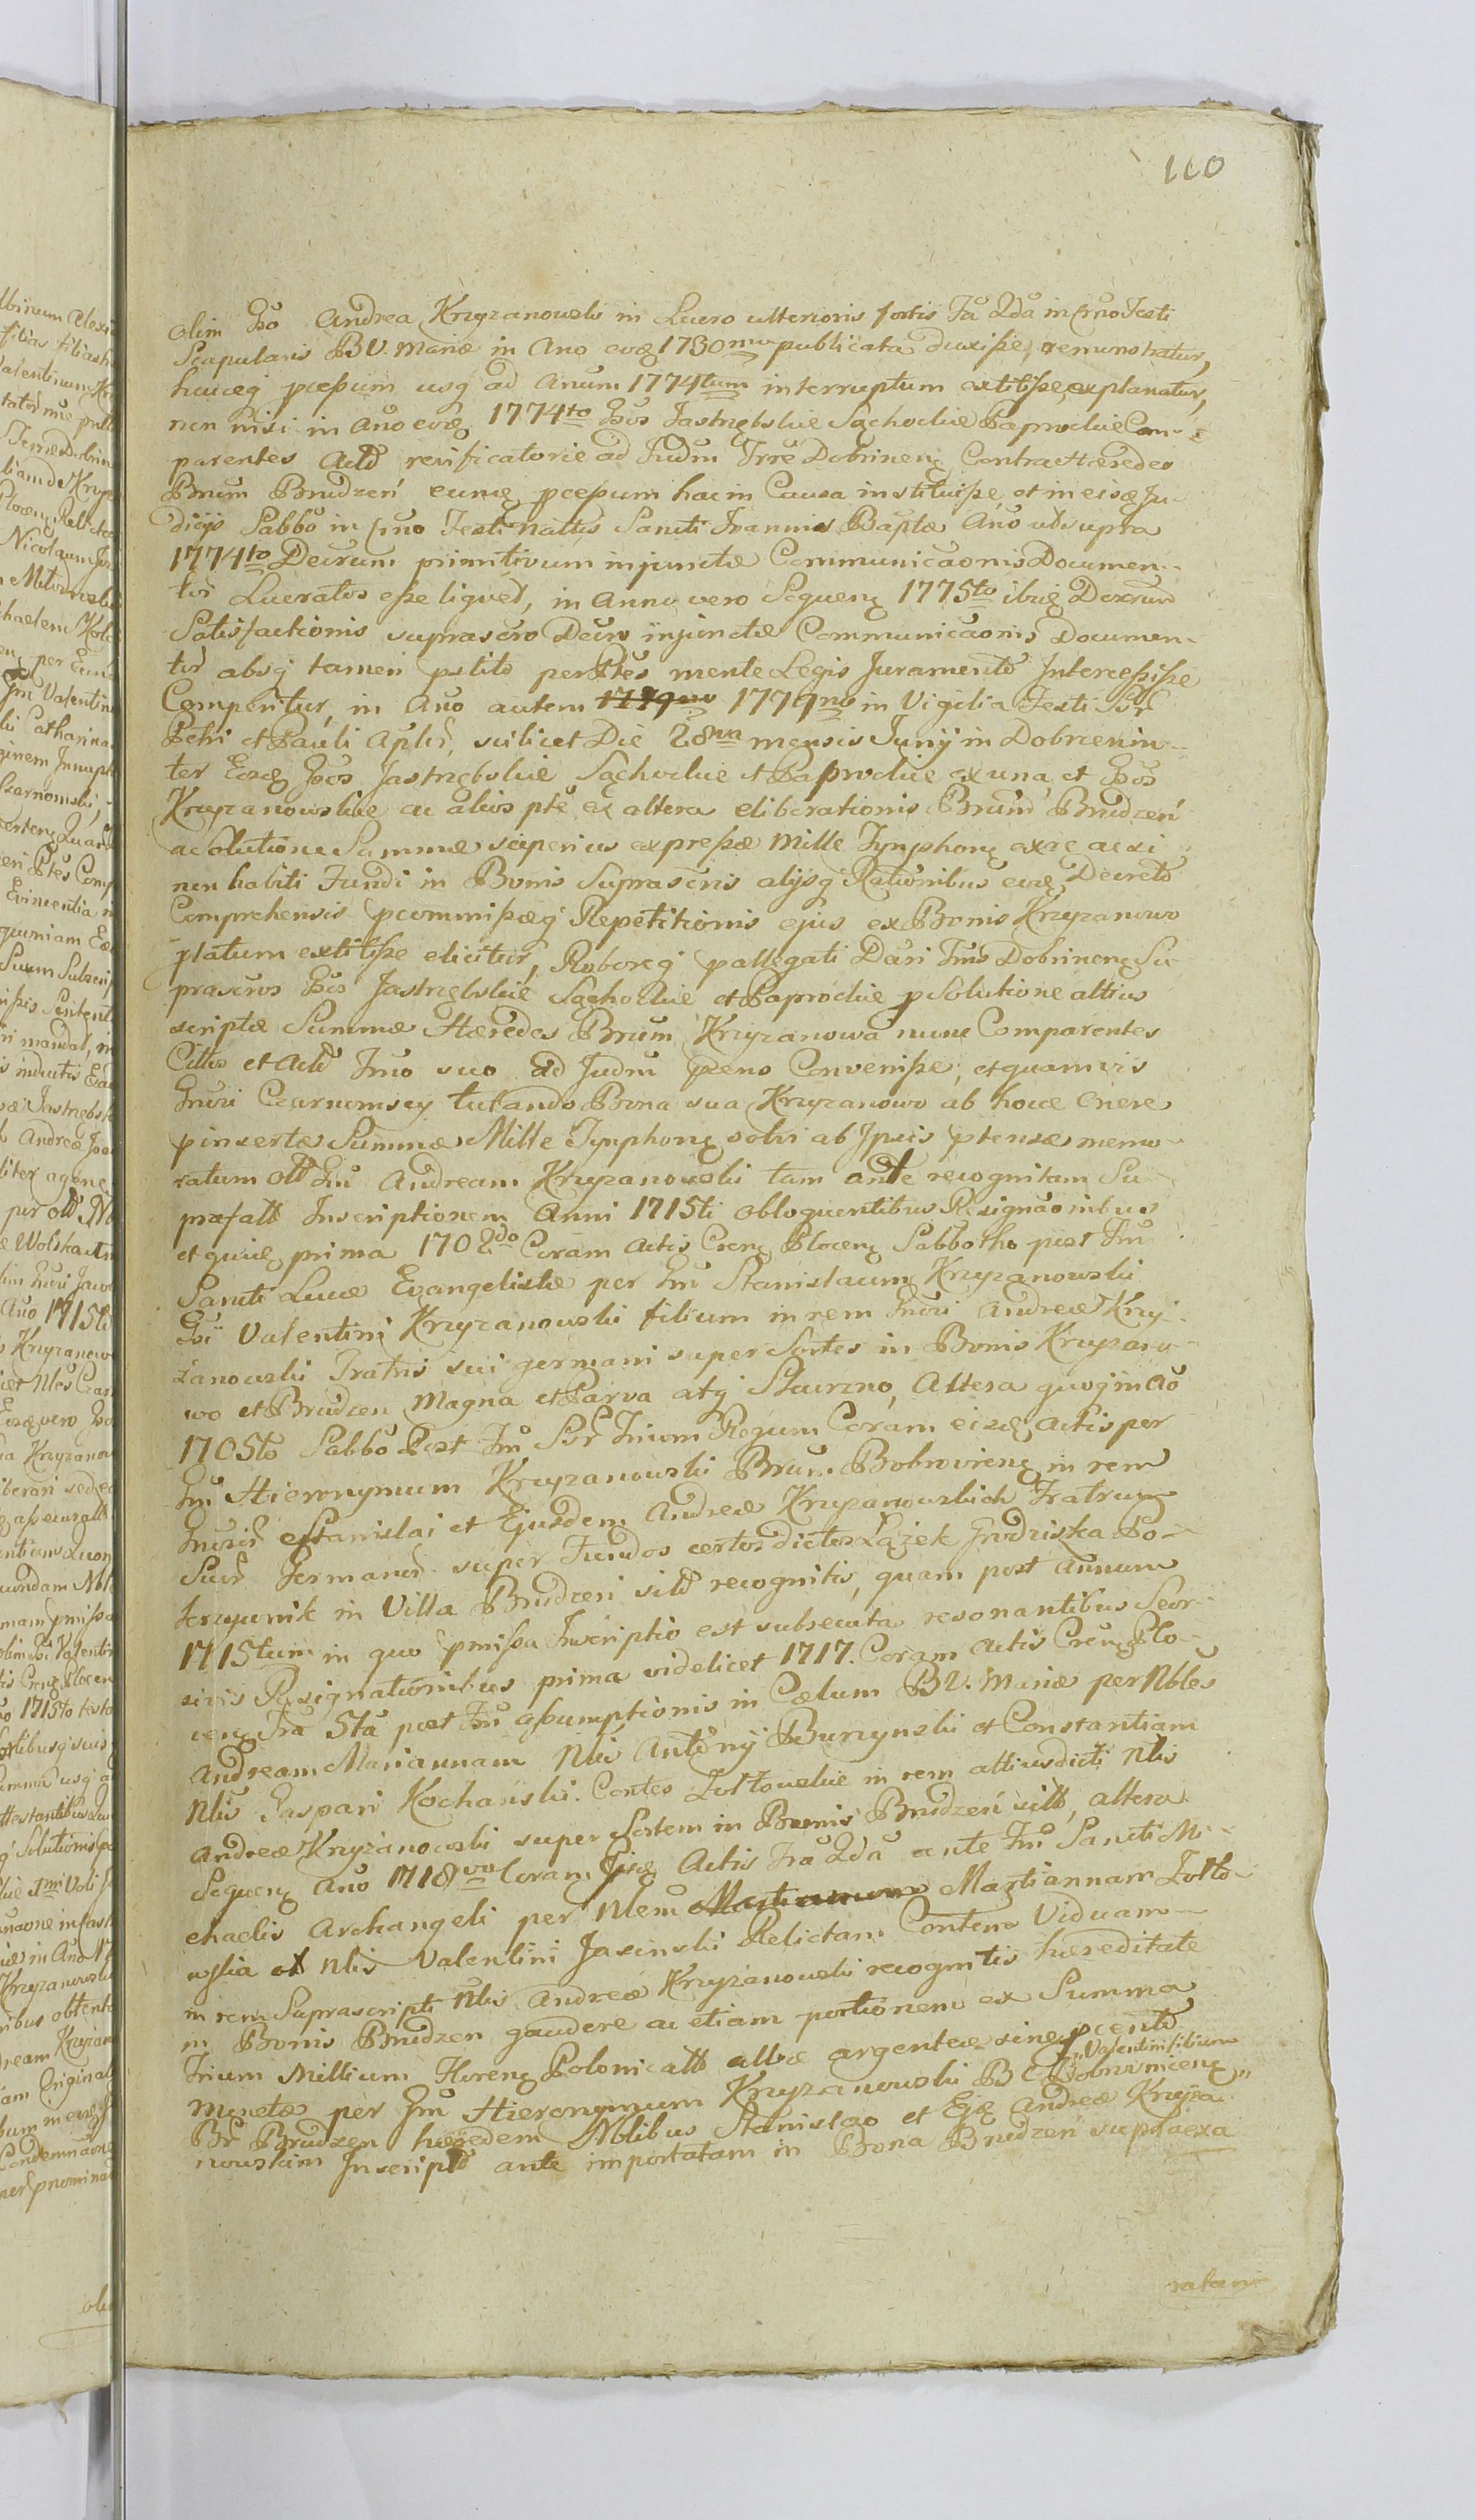 110
olim Gso Andrea Krzyzanowski in Lucro ulterioris fortis Fa 2da in Crno Festi
Scapularis B V. Mariæ in Ano eoq 1730mo publicata duxiße, remonstratur,
huncq pceßum usq ad Anum 1774tum interruptum extitiße explanatur,
non nisi in Ano eoq 1774to Gsos Jastrzębskie Sąchockie Paprockie Com-
parentes Actũ reificatorie ad Judm Trre Dobrinenq Contra Hæredes
Bnrum Brudzeń eumq pceßum hac in Causa instituiße, et in eisq Ju-
dicijs Sabbo in Crno Festi Nattis Sancti Joannis Baptæ Ano utsupra
1774to Decrum primitivum injunctæ Communicaonis Documen-
tor Lucratos eße liquet, in Anno vero Sequenq 1775to ibiq Decrum
Satisfactionis suprascro Decro injunctæ Communicaonis Documen-
tor absq tamen pstito per Ptes mente Legis Juramento Interceßiße
Comperitur, in Ano autem 1779no 1779no in Vigilia Festi Ssr
Petri et Pauli Aplor, scilicet Die 28va mensis Junij in Dobrcenin
ter Eosq Gsos Jastrzębskie Sąchockie et Paprockie ex una, et Gsos
Krzyzanowskie ac alios pte ex altera eliberationis Bnrum Brudzeń
a Solutione Summæ superius expreßæ Mille Tynphonq exre acsi
non habiti Fundi in Bonis Suprascris alijsq Rationibus eoq Decreto
Comprehensis pcommißæq Repetitionis ejus ex Bonis Krzyzanowo
platum extitiße elicitur, Roboreq pallegati Dari Jmis Dobrinenq Su
prascros Gsos Jastrzębskie Sąchockie et Paprockie p Solutione altius
scriptæ Summæ Hæredes Bnrum Krzyzanowa nunc Comparentes
Citto et Actũ Jmo suo ad Judm pæno Conveniße, et quamvis
Gnrsi Czarnomscy tutando Bona sua Krzyzanowo ab hocce Onere
pinsertæ Summæ Mille Tynphonq solvi ab Jpsis ptensæ memo-
ratum olt Gm Andream Krzyzanowski tam ante recognitam Su-
præfatt Inscriptionem Anni 1715ti obloquentibus Resignaonibus
et quiq prima 1702do Coram Actis Crenq Plocenq Sabbotho post Fm
Sancti Lucæ Evangelistæ per Gm Stanislaum Krzyzanowski
Gsi Valentini Krzyzanowski filium in rem Gnrsi Andreæ Krzy-
żanowski Fratris sui germani super Sortes in Bonis Krzyzano-
wo et Brudzen Magna et Parva atq Sturzno, Altera quoq in Ao
1705to Sabbo Post Fm Ssr Trium Regum Coram eisq Actis per
Gm Hieronymum Krzyzanowski Bnrum Bobrovienq in rem
Gnrsor Stanislai et Ejusdem Andreæ Krzyzanowskich Fratrum
Suor Germanor super Fundos certos dictos Łążek Grodziska Po-
krzywnik in Villa Brudzeń sitt recognitis, quam post Annum
1715tum in quo pmißa Inscriptio est subsecuta resonantibus Seor-
sivis Resignationibus prima videlicet 1717. Coram Actis Crenq Plo-
cenq Fra 5ta post Fm Aßumptionis in Cælum B V. Mariæ per Nbles
Andream Mariannam Nlis Antonij Burzynski et Constantiam
Nlis Gaspari Kochański Contes Zołtowskie in rem altiusdicti Nlis
Andreæ Krzyżanowski super Sortem in Bonis Brudzeń sitt, altera
Sequenq Ano 1718vo Coram Jisq Actis Fra 2da ante Fm Sancti Mi-
chaelis Archangeli per Nlem Martiannam Zołto-
wska olt Nlis Valentini Jasinski Relictam Contem Viduam
in rem Suprascripti Nlis Andreæ Krzyżanowski recognitis hæreditate
in Bonis Brudzen gaudere ac etiam portionem ex Summa
Trium Millium Florenq Polonicalt albæ argenteæ sine pcento
Monetæ per Gm Hieronymum Krzyzanowski B C Bobrovnicenq "Valentini filium"
Br Brudzen hæredem Nblibus Stanislao et Ejq Andreæ Krzyża
nowskim Inscriptũ ante importatam in Bona Brudzeń supraexa
ratam